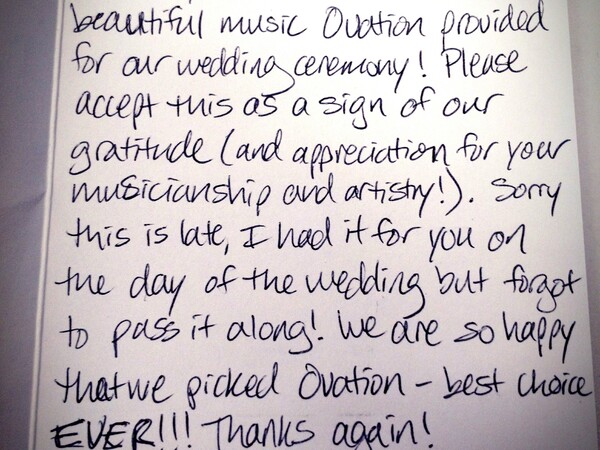 beautiful music Ovation provided
for our wedding ceremony! Please
accept this as a sign of our
gratitude (and appreciation for your
musicianship and artistry!). Sorry
this is late, I had it for you on
the day of the wedding but forgot
to pass it along! We are so happy
that we picked Ovation - best choice
EVER!!! Thanks again!